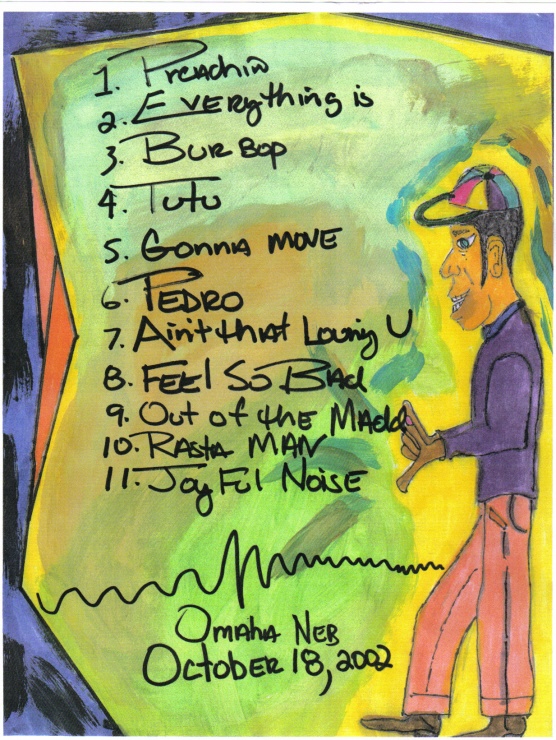 1. Preachin
2. Everything is
3. Bur Bop
4. Tutu
5. Gonna move
6. Pedro
7. Ain't that Loving U
8. Feel So Bad
9. Out of the Madd
10. Rasta Man
11. Joyful Noise
Omaha Neb
October 18, 2002